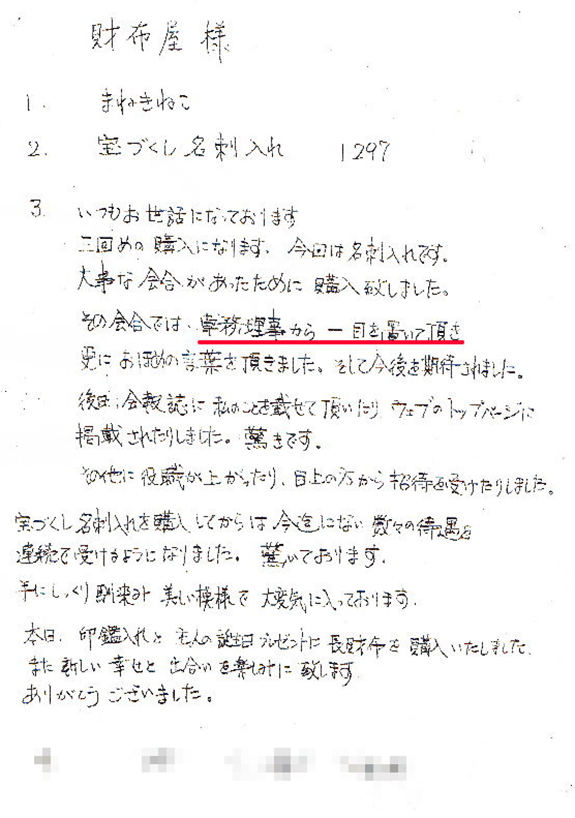 財布屋 様
1. まねきねこ
2. 宝づくし名刺入れ 1297
3. いつもお世話になっております
三回めの購入になります、今回は名刺入れです。
大事な会合があったために購入致しました。
その会合では、専務理事から一目を置いて頂き
更におほめの言葉を頂きました。そして今後を期待されました。
後日、会報誌に私のことを載せて頂いたり ウェブのトップページに
掲載されたりしました。驚きです。
その他に役職が上がったり、目上の方から招待を受けたりしました。
宝づくし名刺入れを購入してからは今迄にない数々の待遇を
連続で受けるようになりました。驚いております.
手にしっくり馴染み 美しい模様で 大変気に入っております.
本日、印鑑入れと主人の誕生日プレゼントに長財布を購入いたしました.
また新しい幸せと出合いを楽しみに致します
ありがとうございました。